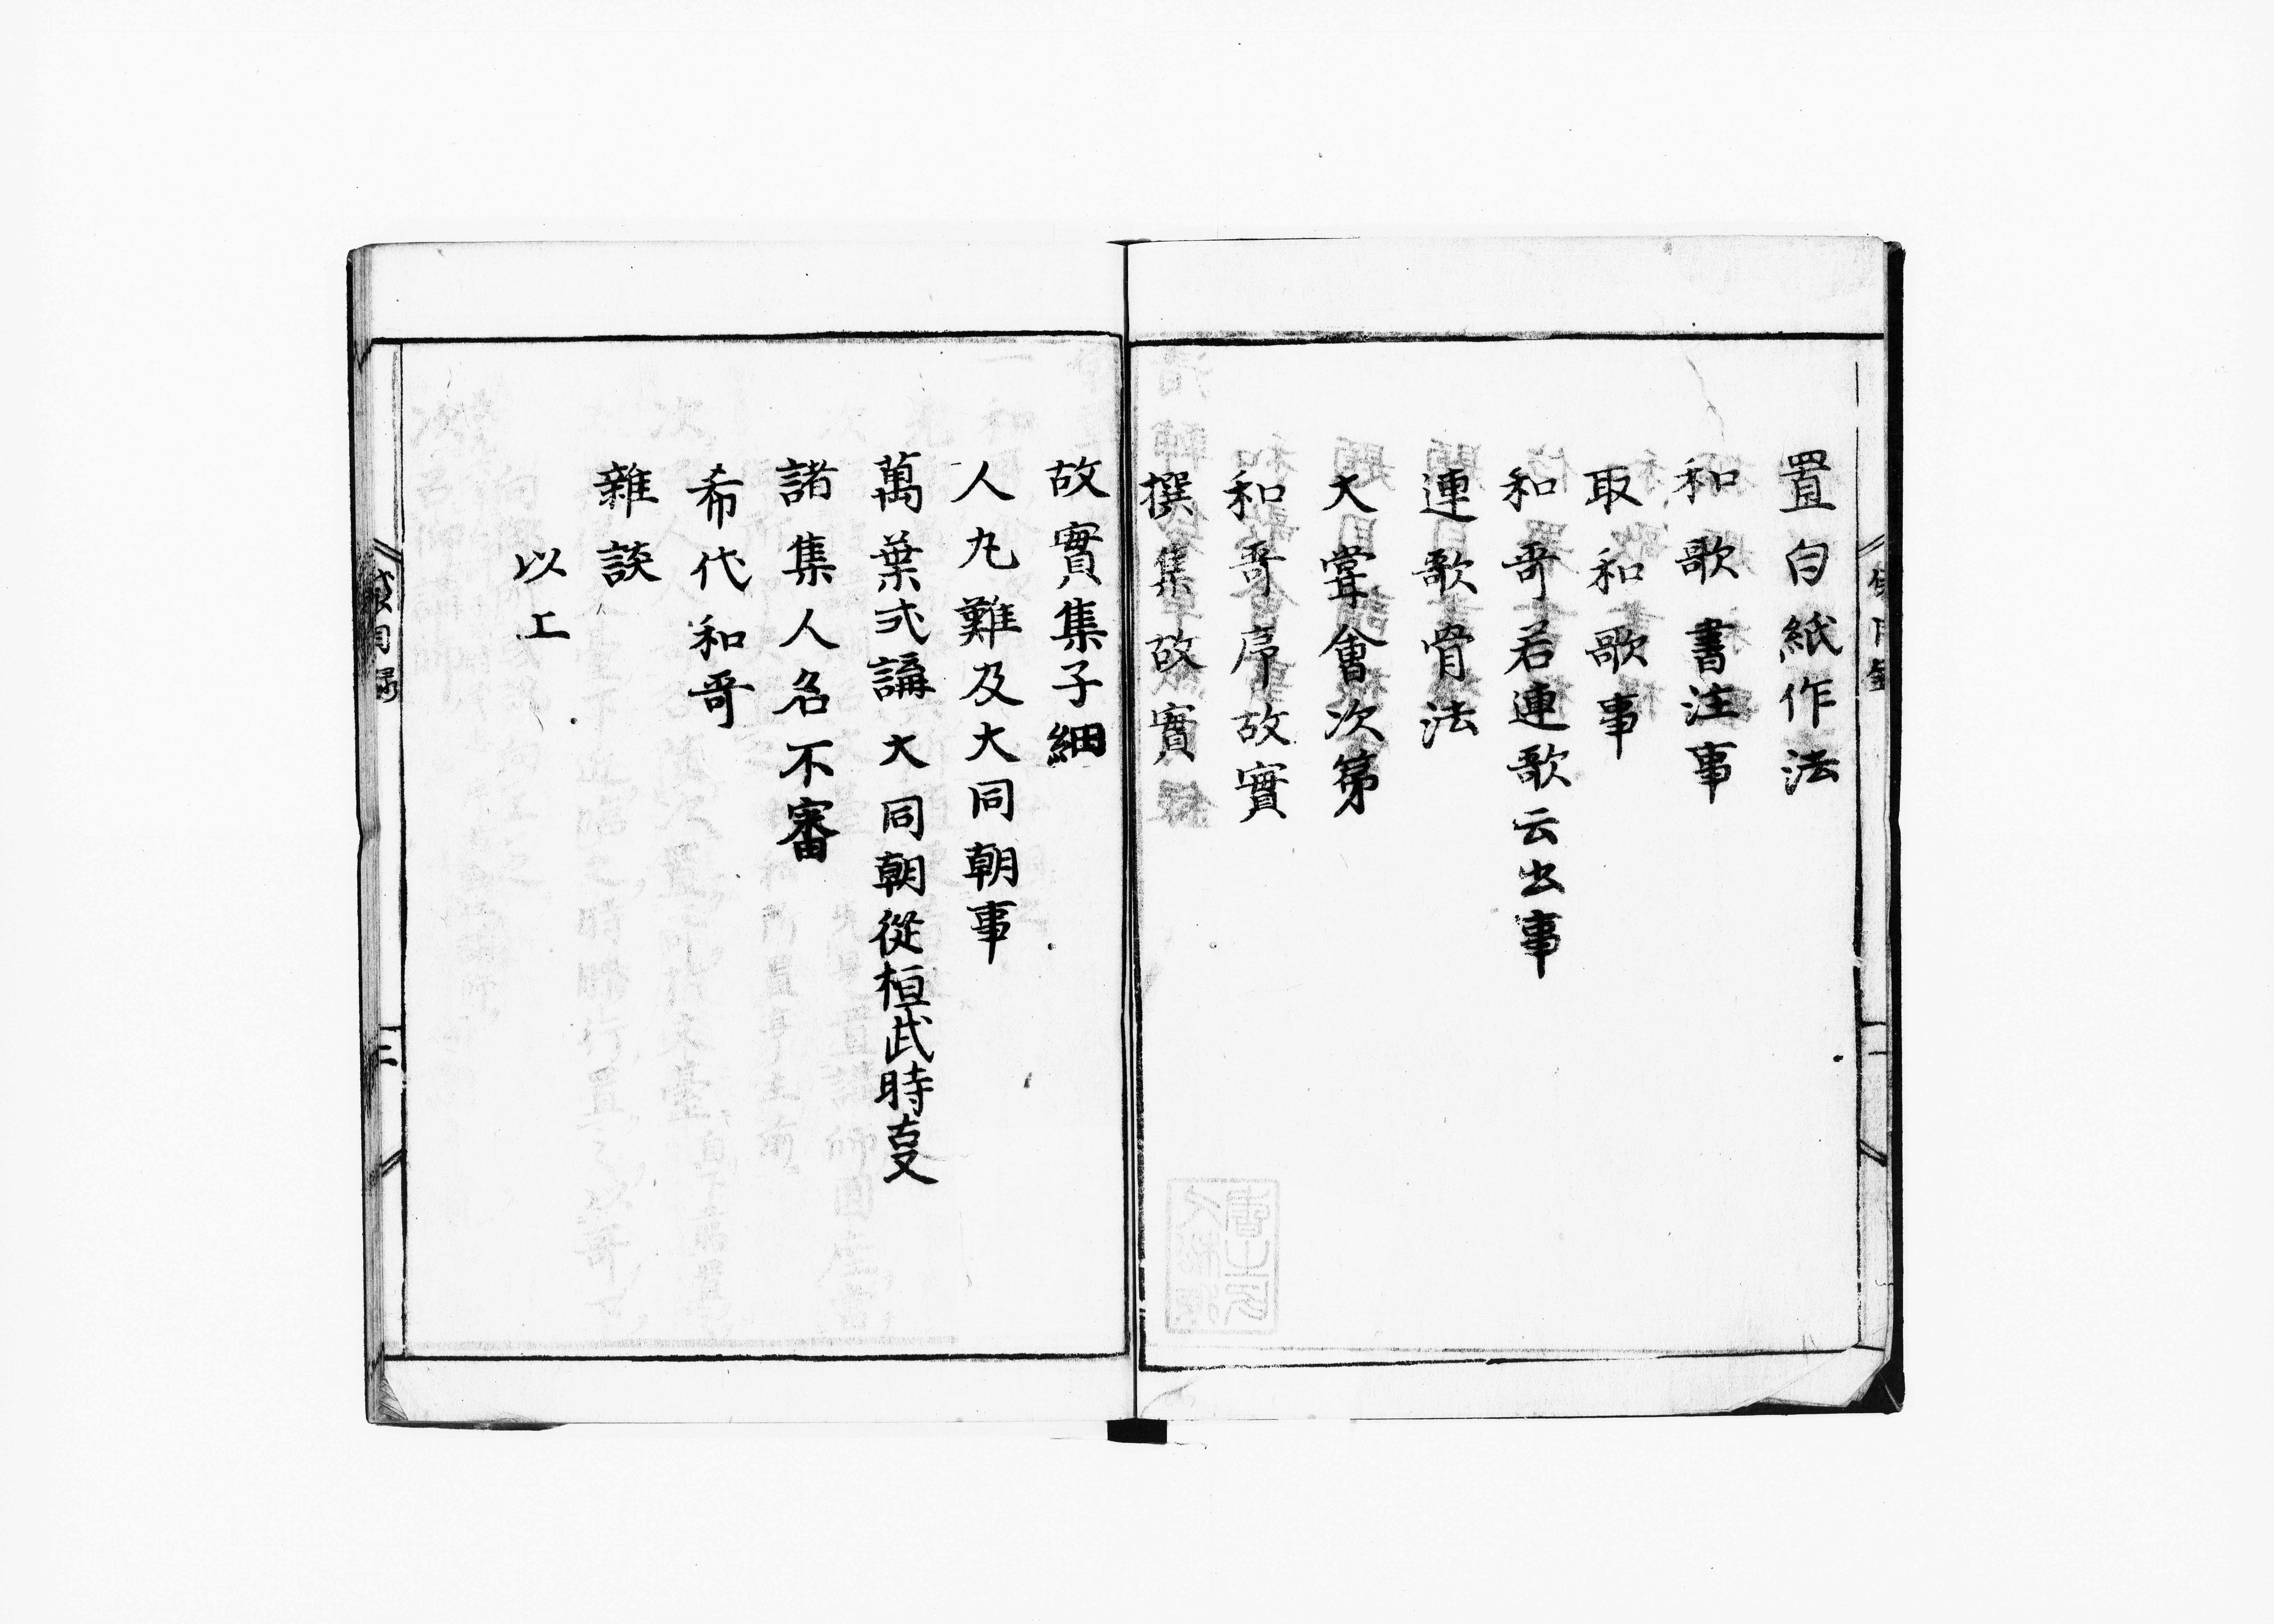 置白紙作法
和歌書注事
取和歌事
和哥若連歌云出事
連歌骨法
大嘗會次第
和哥序故實
撰集故實
故實集子細
人丸難及大同朝事
萬葉弐講大同朝從桓武時叓
諸集人名不審
希代和哥
雜談
以上